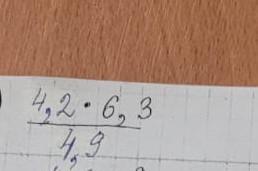 4,2 · 6,3
4,9